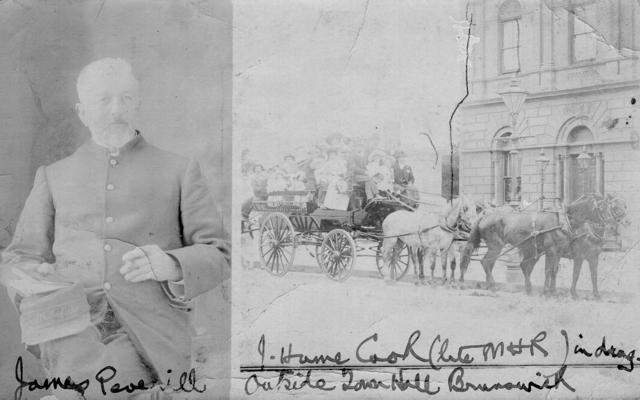 James Peverill
J. Hume Cook (late MHR) in drag.
Outside Town Hall Brunswick